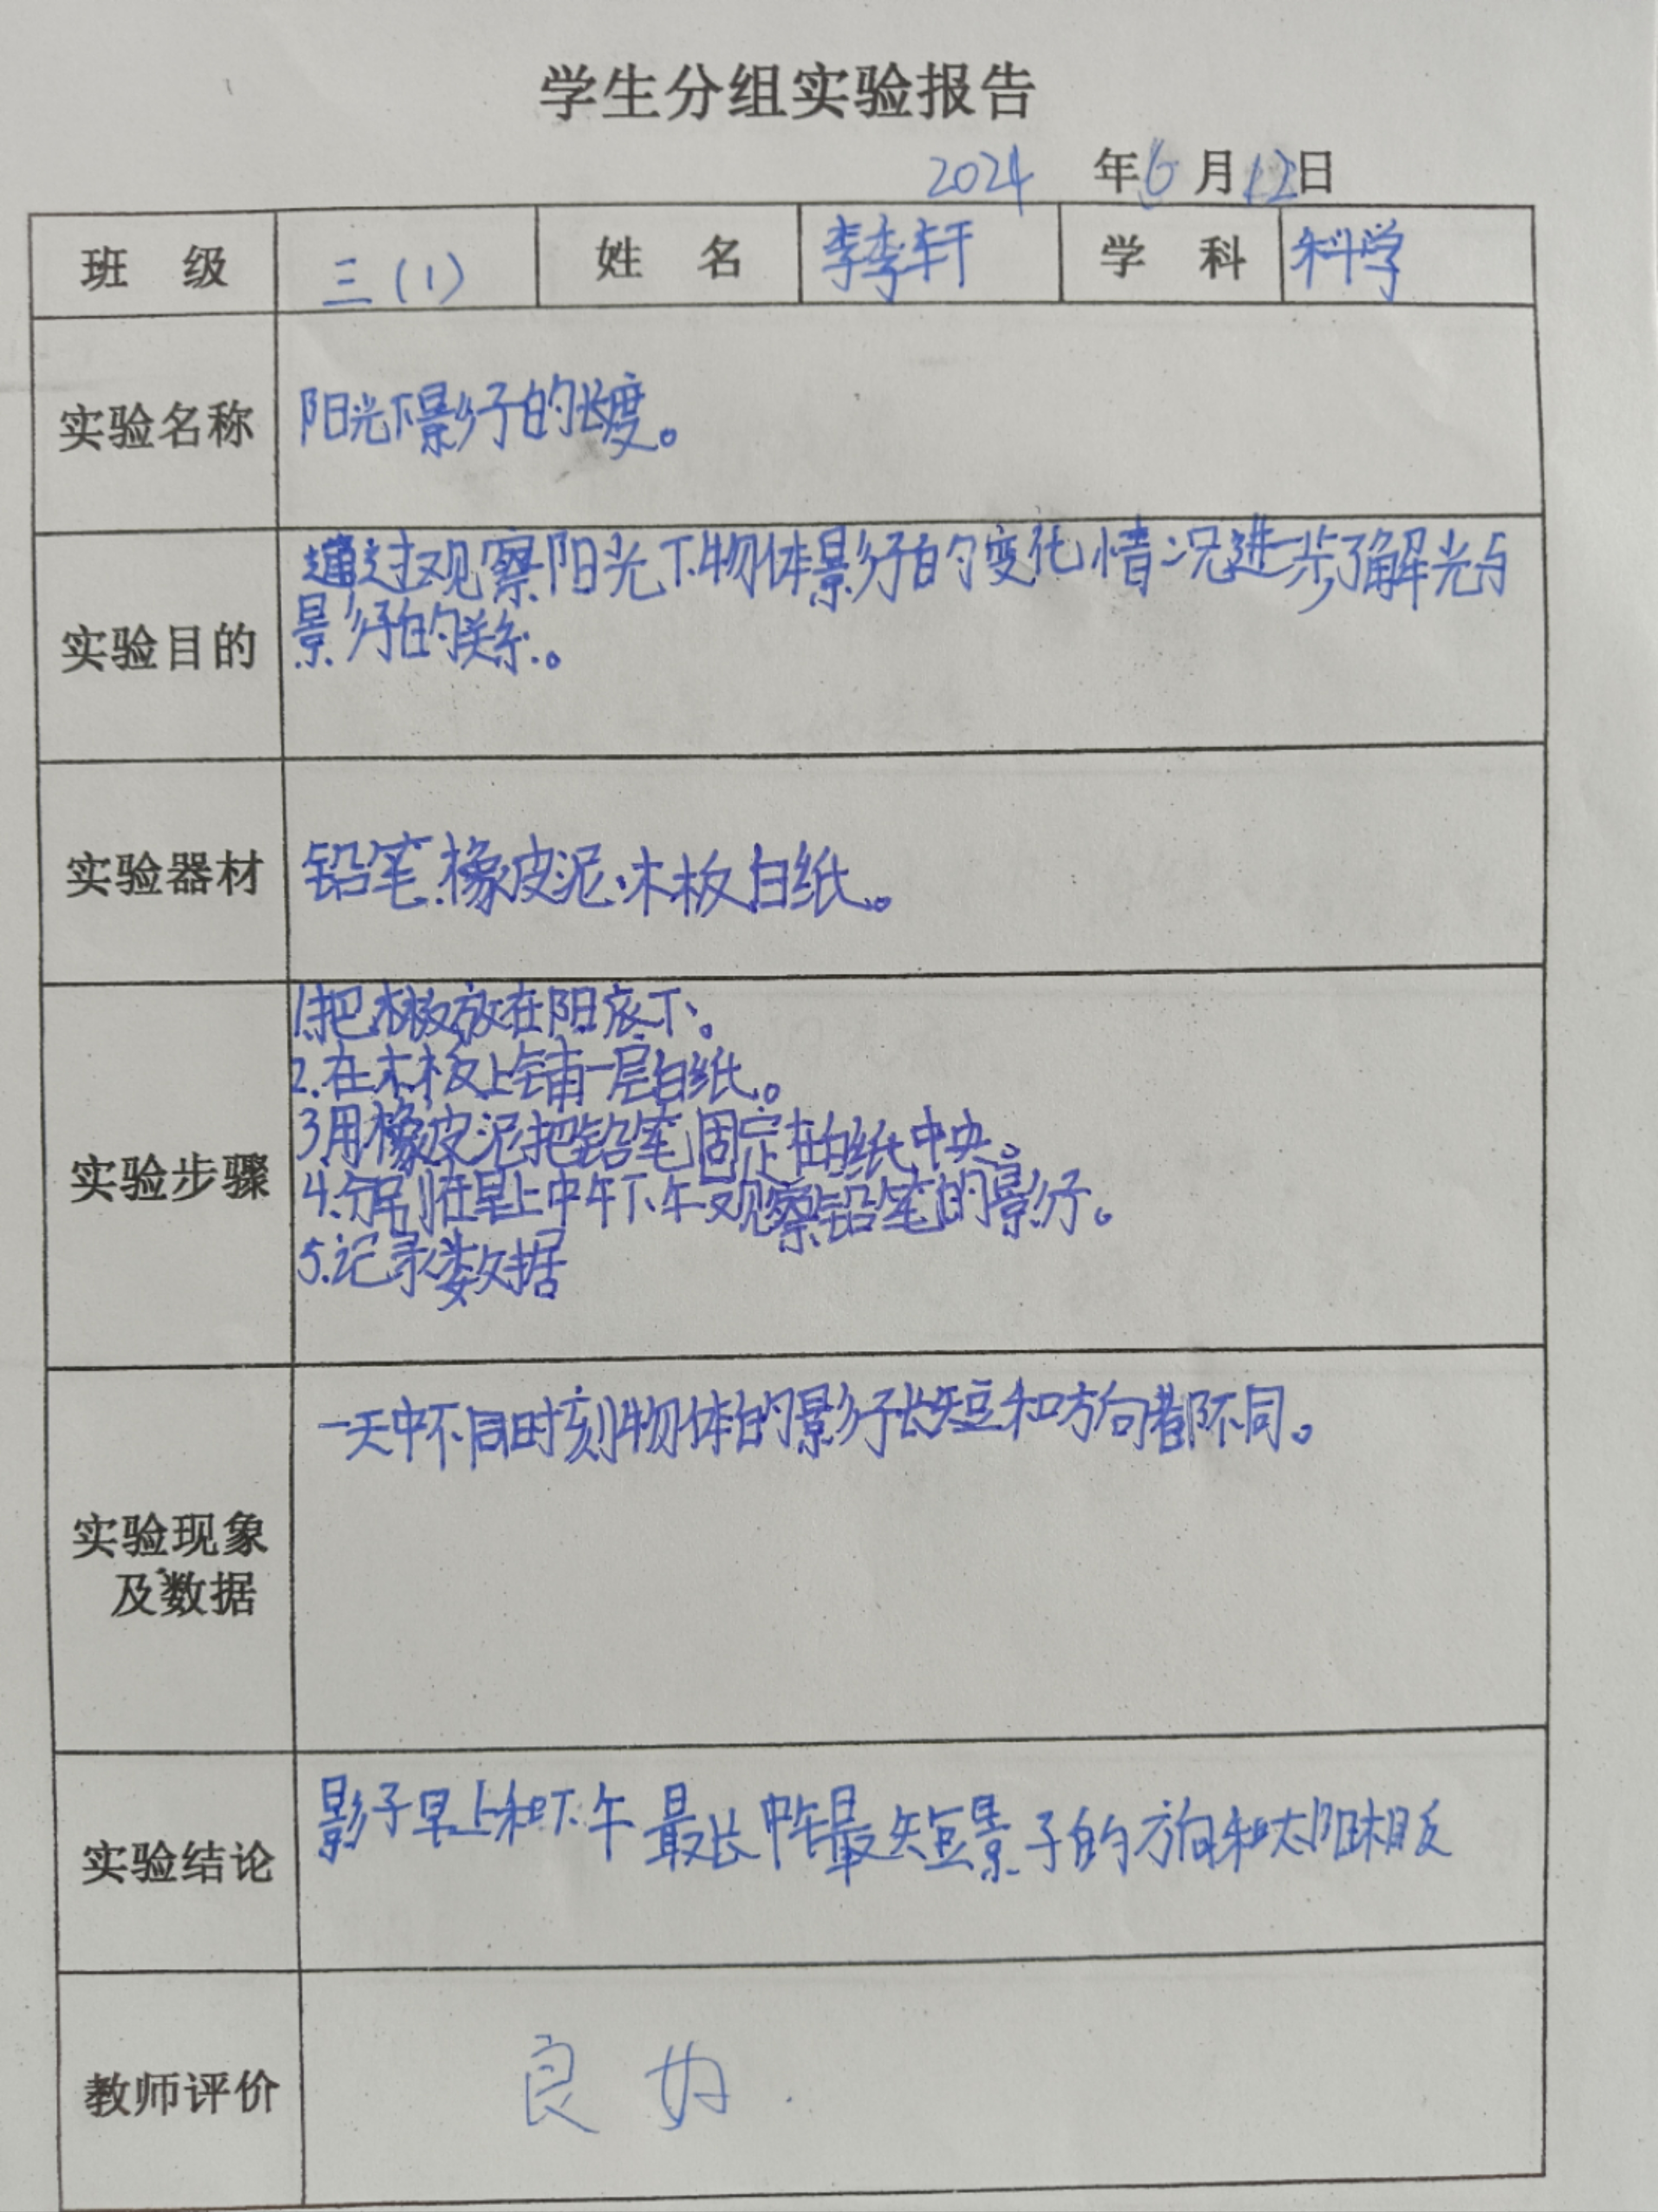 学生分组实验报告
2024 年6月12日
班 级 三(1) 姓 名 李轩 学 科 科学
实验名称 阳光下影子的长度。
实验目的 通过观察阳光下物体影子的变化情况进一步了解光与
影子的关系。
实验器材 铅笔、橡皮泥、木板白纸。
实验步骤
1.把木板放在阳底下。
2.在木板上铺一层白纸。
3用橡皮泥把铅笔固定在白纸中央。
4.分别在早上中午下午观察铅笔的影子。
5.记录数据
实验现象
及数据
一天中不同时刻物体的影子长短和方向都不同。
实验结论 影子早上和下午最长中午最短影子的方向和太阳相反
教师评价 良好.